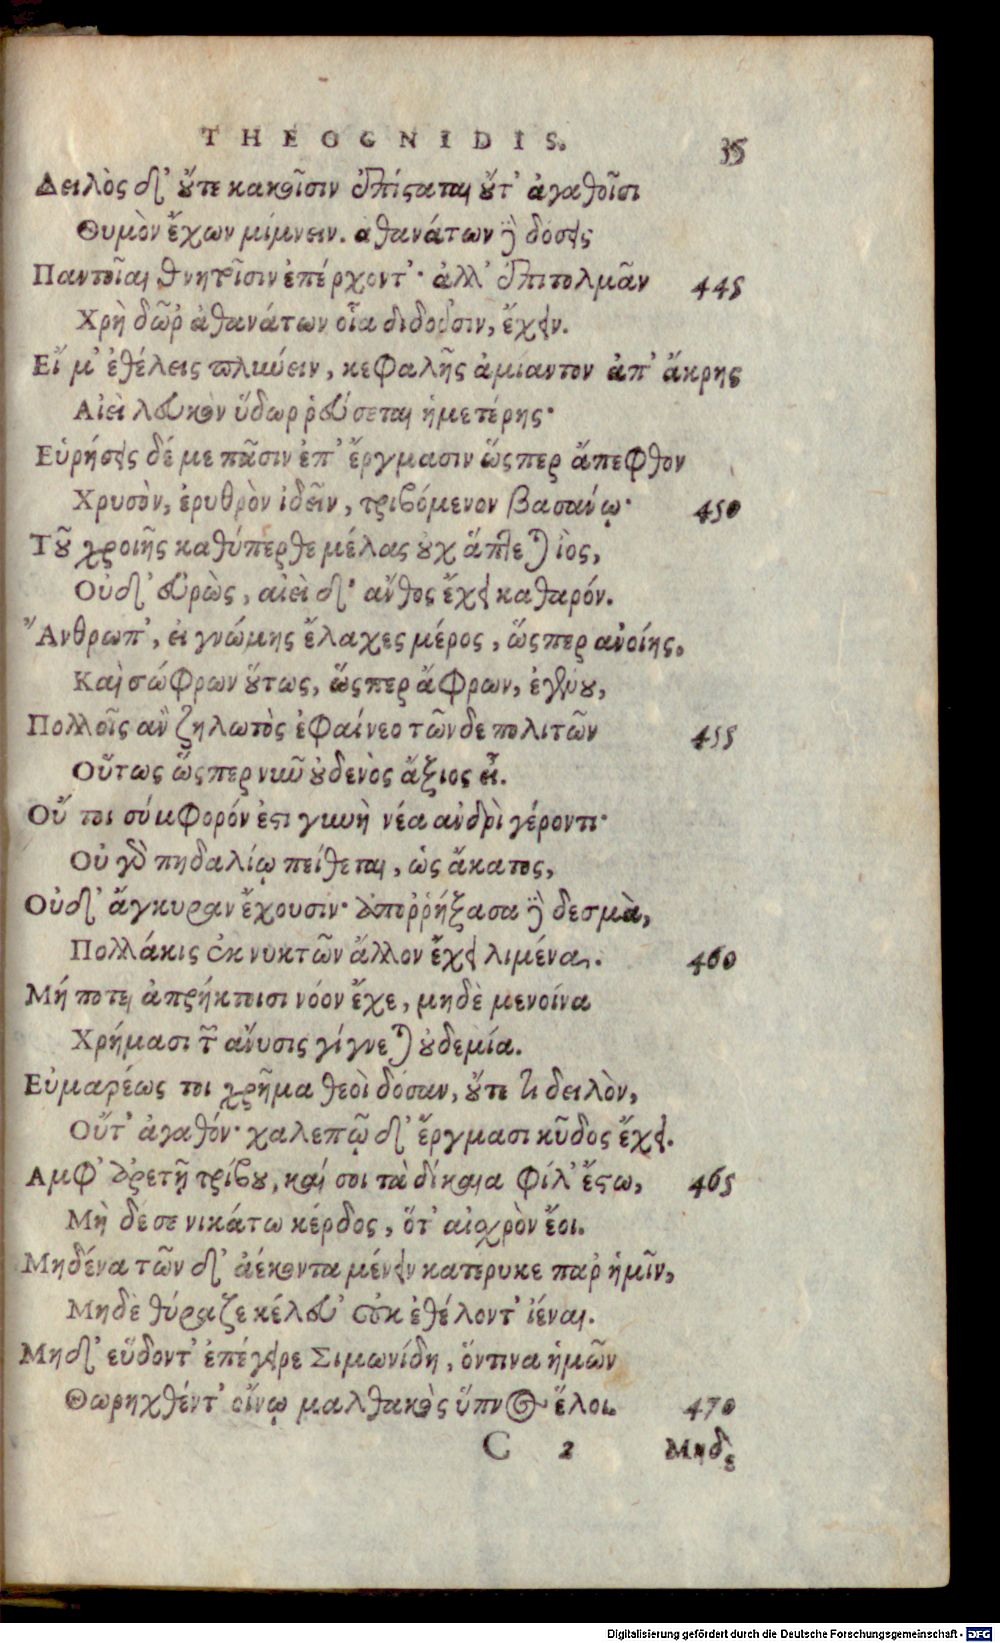 THEOGNIDIS. 35
Δειλὸς δ' οὔτε κακοῖσιν ἐπίσταται οὔτ' ἀγαθοῖσι
Θυμὸν ἔχων μίμνειν. ἀθανάτων δὲ δόσεις
Παντοῖαι θνητοῖσιν ἐπέρχοντ'· ἀλλ' ἐπιτολμᾶν 445
Χρὴ δῶρ' ἀθανάτων οἷα διδοῦσιν, ἔχειν.
Εἴ μ' ἐθέλεις πλύνειν, κεφαλῆς ἀμίαντον ἀπ' ἄκρης
Αἰεὶ λευκὸν ὕδωρ ῥεύσεται ἡμετέρης·
Εὑρήσεις δέ με πᾶσιν ἐπ' ἔργμασιν ὥσπερ ἄπεφθον
Χρυσὸν, ἐρυθρὸν ἰδεῖν, τριβόμενον βασάνῳ· 450
Τοῦ χροιῆς καθύπερθε μέλας οὐχ ἅπτεται ἰὸς,
Οὐδ' εὐρὼς, αἰεὶ δ' ἄνθος ἔχει καθαρόν.
Ἄνθρωπ', εἰ γνώμης ἔλαχες μέρος, ὥσπερ ἀνοίης,
Καὶ σώφρων οὕτως, ὥσπερ ἄφρων, ἐγένου,
Πολλοῖς ἂν ζηλωτὸς ἐφαίνεο τῶνδε πολιτῶν 455
Οὕτως ὥσπερ νῦν οὐδενὸς ἄξιος εἶ.
Οὔ τοι σύμφορόν ἐστι γυνὴ νέα ἀνδρὶ γέροντι·
Οὐ γὰρ πηδαλίῳ πείθεται, ὡς ἄκατος,
Οὐδ' ἄγκυραν ἔχουσιν· ἀποῤῥήξασα δὲ δεσμὰ,
Πολλάκις ἐκ νυκτῶν ἄλλον ἔχει λιμένα. 460
Μή ποτε ἀπρήκτοισι νόον ἔχε, μηδὲ μενοίνα
Χρήμασι τῶν ἄνυσις γίγνεται οὐδεμία.
Εὐμαρέως τοι χρῆμα θεοὶ δόσαν, οὔτε τι δειλὸν,
Οὔτ' ἀγαθόν· χαλεπῷ δ' ἔργμασι κῦδος ἔχει.
Αμφ' ἀρετῇ τρίβου, καί σοι τὰ δίκαια φίλ' ἔστω, 465
Μὴ δέ σε νικάτω κέρδος, ὅτ' αἰσχρὸν ἔοι.
Μηδένα τῶν δ' ἀέκοντα μένειν κατέρυκε παρ' ἡμῖν,
Μηδὲ θύραζε κέλευ' οὐκ ἐθέλοντ' ἰέναι.
Μηδ' εὕδοντ' ἐπέγειρε Σιμωνίδη, ὅντινα ἡμῶν
Θωρηχθέντ' οἴνῳ μαλθακὸς ὕπνος ἕλοι. 470
C 2 Μηδὲ
Digitalisierung gefördert durch die Deutsche Forschungsgemeinschaft - DFG